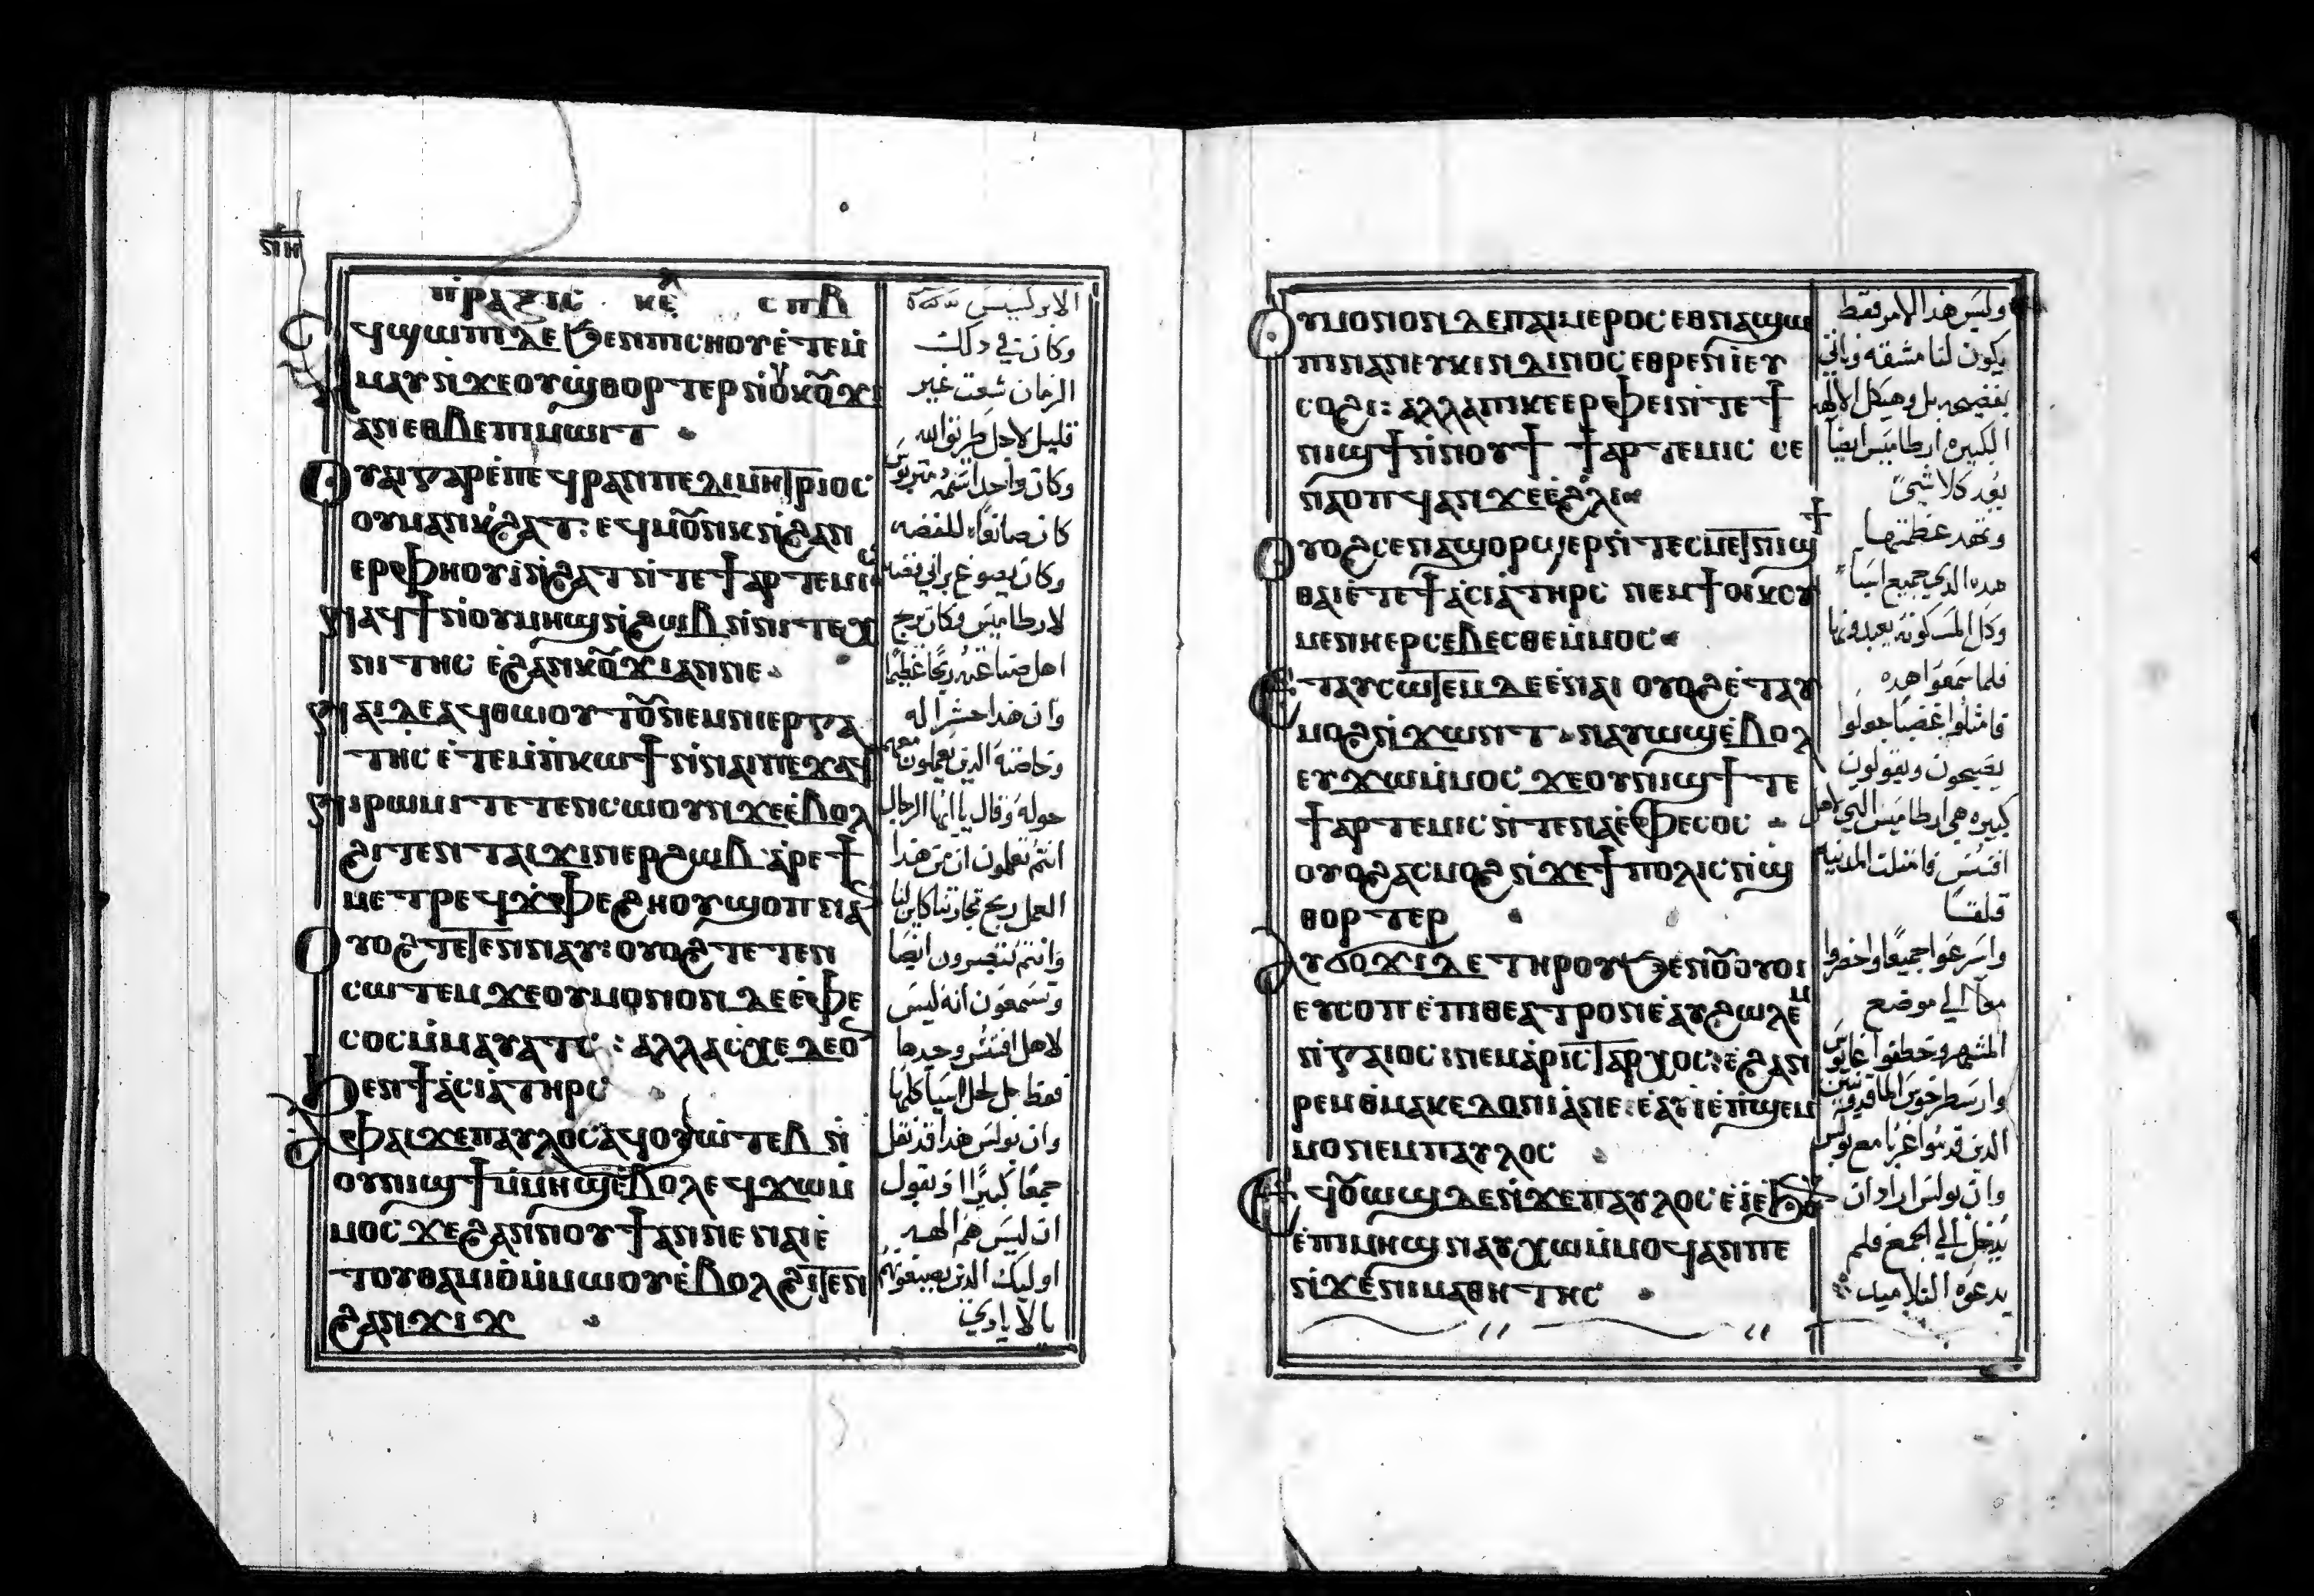 ⲛⲏ
ⲡⲣⲁⲝⲓⲥ ⲕⲉ ⲥⲡⲃ
ⲥϥϣⲱⲡⲓ ⲇⲉ ϧⲉⲛⲡⲓⲥⲏⲟⲩ ⲉⲧⲉⲙ
ⲙⲁⲩ ⲛϫⲉⲟⲩϣⲑⲟⲣⲧⲉⲣ ⲛⲟⲩⲕⲟⲩϫⲓ
ⲁⲛ ⲉⲑⲃⲉⲡⲓⲙⲱⲓⲧ
ⲟⲩⲁⲓ ⲅⲁⲣ ⲉⲡⲉϥⲣⲁⲛ ⲡⲉ ⲇⲓⲙⲏⲧⲣⲓⲟⲥ
ⲟⲩⲙⲁⲛⲕϩⲁⲧ: ⲉϥⲙⲟⲩⲛⲕ ⲛϩⲁⲛ
ⲉⲣⲫⲏⲟⲩⲓ ⲛϩⲁⲧ ⲛⲧⲉϯⲁⲣⲧⲉⲙⲓⲥ
ⲛⲁϥϯ ⲛⲟⲩⲙⲏϣ ⲛϩⲱⲃ ⲛⲛⲓⲧⲉⲭ
ⲛⲓⲧⲏⲥ ⲉϩⲁⲛⲕⲟⲩϫⲓ ⲁⲛ ⲡⲉ
ⲛⲁⲓ ⲇⲉ ⲁϥⲑⲱⲟⲩⲧⲟⲩ ⲛⲉⲙⲛⲓⲉⲣⲅⲁ
ⲧⲏⲥ ⲉⲧⲉⲙⲡⲕⲱϯ ⲛⲛⲁⲓ ⲡⲉϫⲁϥ
ⲛⲓⲣⲱⲙⲓ ⲧⲉⲧⲉⲛⲥⲱⲟⲩⲛ ϫⲉ ⲉⲃⲟⲗ
ϩⲓⲧⲉⲛⲧⲁⲓϫⲓⲛⲉⲣϩⲱⲃ ⲁⲣⲉϯ
ⲙⲉⲧⲣⲉϥϫⲫⲉϩⲏⲟⲩ ϣⲟⲡ ⲛⲁⲛ
ⲟⲩⲟϩ ⲧⲉⲧⲉⲛⲛⲁⲩ: ⲟⲩⲟϩ ⲧⲉⲧⲉⲛ
ⲥⲱⲧⲉⲙ ϫⲉ ⲟⲩⲙⲟⲛⲟⲛ ⲇⲉ ⲉⲫⲉ
ⲥⲟⲥ ⲙⲙⲁⲩⲁⲧⲥ: ⲁⲗⲗⲁ ⲥⲭⲉⲇⲉⲟⲛ
ϧⲉⲛϯⲁⲥⲓⲁ ⲧⲏⲣⲥ
ⲁⲫⲁⲓ ϫⲉ ⲡⲁⲩⲗⲟⲥ ⲁϥⲟⲩⲱⲧⲉⲃ ⲛ
ⲟⲩⲛⲓϣϯ ⲙⲙⲏϣ ⲉⲃⲟⲗ ⲉϥϫⲱⲙ
ⲙⲟⲥ ϫⲉ ϩⲁⲛⲛⲟⲩϯ ⲁⲛ ⲛⲉ ⲛⲁⲓ ⲉ
ⲧⲟⲩⲑⲁⲙⲓⲟ ⲙⲙⲱⲟⲩ ⲉⲃⲟⲗ ϩⲓⲧⲉⲛ
ϩⲁⲛϫⲓϫ
وكان في دلك
الزمان شغت غير
قليل لاجل طريق الله
وكان واحدا اسمه دمتريوس
كان صانعا للفضه
لارطاميس وكان يربح
وان هدا حشر اله
وخاصة الدين يعملون معه
حوله وقال يا ايها الرجال
انتم تعلمون ان من هدا
العمل ربح تجارتنا كاين لنا
وانتم تبصرون ايضا
وتسمعون انه ليس
لاهل افسس وحدها
فقط بل لكل اسيا كلها
وان بولس هدا قد نقل
جمعا كبيرا ويقول
ان ليس هم الهه
اوليك الدين يصنعونهم
بالايادي
ⲟⲩⲙⲟⲛⲟⲛ ⲇⲉ ⲡⲁⲓⲙⲉⲣⲟⲥ ⲉⲑⲛⲁϣⲱ
ⲡⲓ ⲛⲁⲛ ⲉⲩⲕⲓⲛⲇⲓⲛⲟⲥ ⲉⲑⲣⲉⲛⲓ ⲉⲩ
ⲥⲟϩⲓ: ⲁⲗⲗⲁ ⲡⲓⲕⲉⲉⲣⲫⲉⲓ ⲛⲧⲉϯ
ⲛⲓϣϯ ⲛⲛⲟⲩϯ ϯⲁⲣⲧⲉⲙⲓⲥ ⲥⲉ
ⲛⲁⲟⲡϥ ⲁⲛ ϫⲉ ⲉϩⲗⲓ
ⲟⲩⲟϩ ⲥⲉⲛⲁϣⲟⲣϣⲉⲣ ⲛⲧⲉⲥⲙⲉⲧⲛⲓϣϯ
ⲑⲁⲓ ⲉⲧⲉϯⲁⲥⲓⲁ ⲧⲏⲣⲥ ⲛⲉⲙϯⲟⲓⲕⲟⲩ
ⲙⲉⲛⲏ ⲉⲣⲥⲉⲃⲉⲥⲑⲉ ⲙⲙⲟⲥ
ⲉⲧⲁⲩⲥⲱⲧⲉⲙ ⲇⲉ ⲉⲛⲁⲓ ⲟⲩⲟϩ ⲉⲧⲁⲩ
ⲙⲟϩ ⲛϫⲱⲛⲧ ⲛⲁⲩⲱϣ ⲉⲃⲟⲗ
ⲉⲩϫⲱ ⲙⲙⲟⲥ ϫⲉ ⲟⲩⲛⲓϣϯ ⲧⲉ
ϯⲁⲣⲧⲉⲙⲓⲥ ⲛⲧⲉⲛⲁⲉⲫⲉⲥⲟⲥ
ⲟⲩⲟϩ ⲁⲥⲙⲟϩ ⲛϫⲉϯⲡⲟⲗⲓⲥ ⲛϣ
ⲑⲟⲣⲧⲉⲣ
ⲁⲩϭⲟϫⲓ ⲇⲉ ⲧⲏⲣⲟⲩ ϧⲉⲛⲟⲩⲟⲩⲟⲓ
ⲉⲩⲥⲟⲡ ⲉⲡⲓⲑⲉⲁⲧⲣⲟⲛ ⲉⲁⲩϩⲱⲗⲉⲙ
ⲛⲅⲁⲓⲟⲥ: ⲛⲉⲙⲁⲣⲓⲥⲧⲁⲣⲭⲟⲥ: ⲉϩⲁⲛ
ⲣⲉⲙⲑⲙⲁⲕⲉⲇⲟⲛⲓⲁ ⲛⲉ: ⲉⲁⲩⲓ ⲉⲡϣⲉⲙ
ⲙⲟ ⲛⲉⲙⲡⲁⲩⲗⲟⲥ
ⲉϥⲟⲩⲱϣ ⲇⲉ ⲛϫⲉⲡⲁⲩⲗⲟⲥ ⲉⲓ ⲉϧⲟⲩⲛ
ⲉⲡⲓⲙⲏϣ ⲛⲁⲩⲭⲱ ⲙⲙⲟϥ ⲁⲛ ⲡⲉ
ⲛϫⲉⲛⲓⲙⲁⲑⲏⲧⲏⲥ
وليس هدا الامر فقط
يكون لنا مشقه وناتي
بفضيحه بل وهيكل الالهه
الكبيره ارطاميس ايضا
يعد كلا شي
وتهد عظمتها
هده الدي جميع اسيا
وكل المسكونه يعبدونها
فلما سمعوا هده
فامتلوا غضبا جعلوا
يصيحون ويقولون
كبيره هي ارطاميس التي لاهل
افسس فامتلت المدينه
قلقسا
واسرعوا جميعا واحضروا
معا الي موضع
المشهد وخطفوا غايوس
وارسطرخوس الماقدونيين
وان بولس اراد ان
يدخل الي الجمع فلم
يدعوه التلاميد